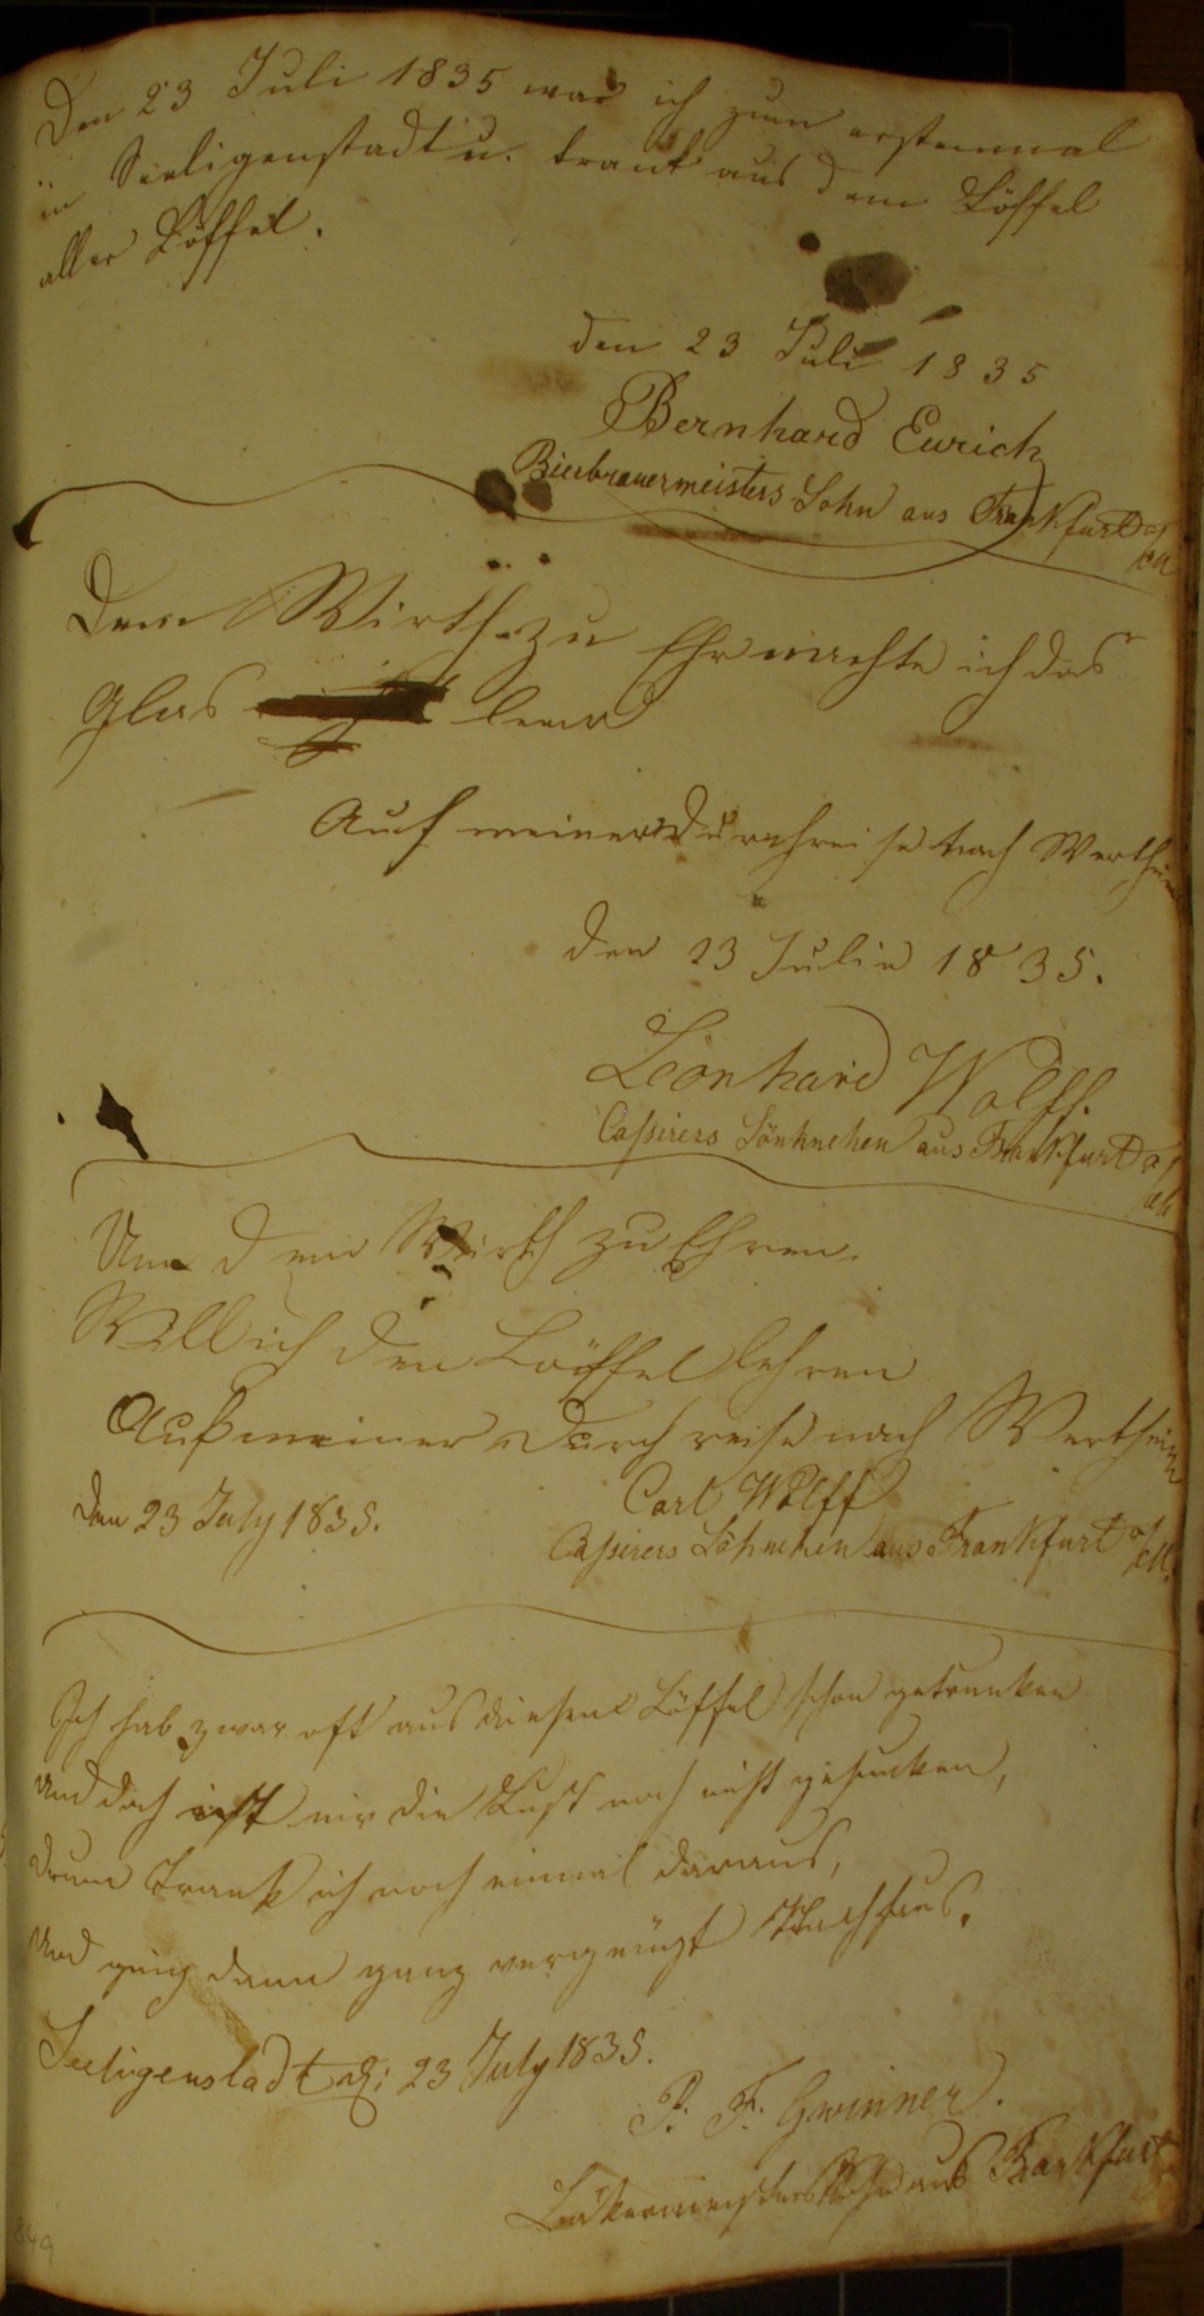 Den 23 Juli 1835 war ich zum erstenmal
in Seeligenstadt u. trank aus dem Löffel
aller Löffel.
den 23 Juli 1835
Bernhard Eurich
Bierbrauermeisters Sohn aus Frankfurt a/M
Dem Wirth zu Ehr machte ich das
Glas leer
Auf meiner Durchreise nach Wertheim
den 23 Julie 1835.
Leonhard Wolff.
Cassirers Söhnchen aus Frankfurt a/M
Um dem Wirth zu Ehren.
Will ich den Löffel lehren
Auf meiner Durch reise nach Wertheim
Carl Wolff
den 23 July 1835.
Cassirers Söhnchen aus Frankfurt a/M.
Ich hab zwar oft aus diesem Löffel schon getrunken
Und doch ist mir die Lust noch nicht gesunken,
Drum Trank ich noch einmal daraus,
Und ging dann ganz vergnügt Nach haus.
Seeligenstadt 23 July 1835.
P. F. Gwinner.
aus Frankfurt
849